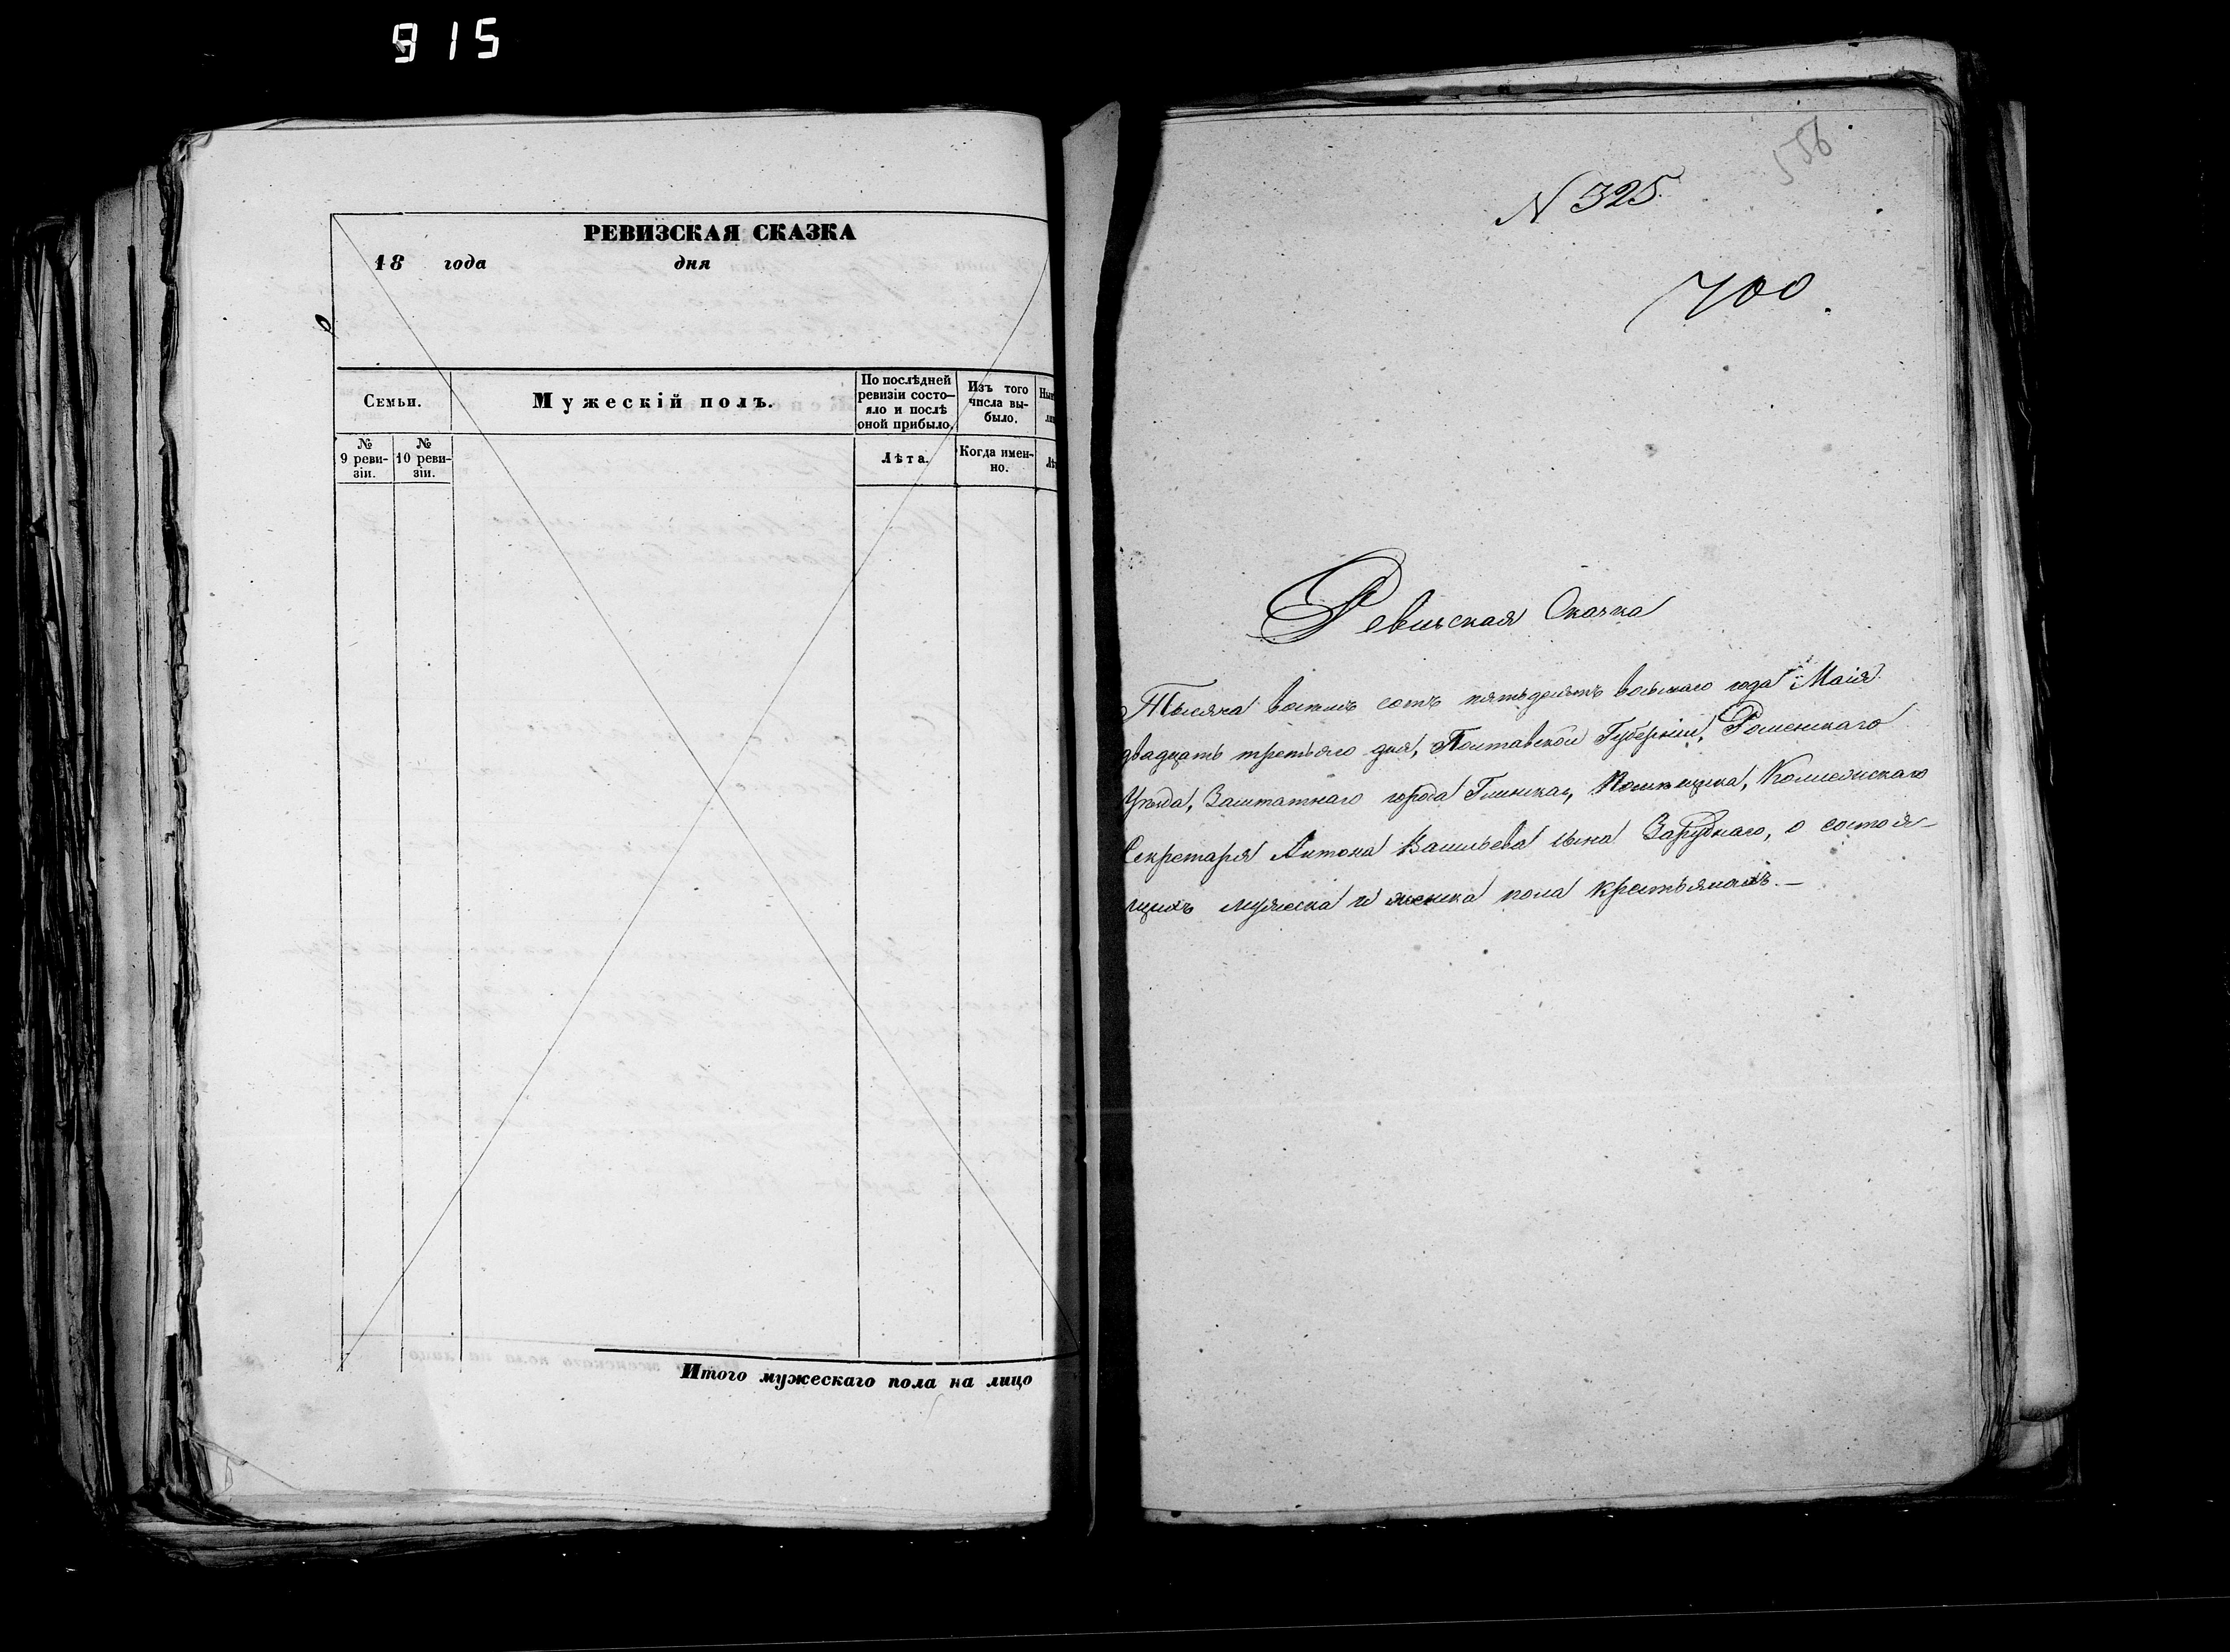 915
РЕВИЗСКАЯ СКАЗКА
18 года дня
Семьи.
Мужескій полъ.
По послѣдней
ревизіи состо-
яло и послѣ
оной прибыло.
Изъ того
числа вы-
было.
№
9 реви-
зіи.
№
10 реви-
зіи.
Лѣта.
Когда имен-
но.
Итого мужескаго пола на лицо
556
N 325.
700.
Ревизская Сказка
Тысяча восемь сотъ пятьдесятъ восьмаго года Маія
двадцать третьяго дня, Полтавской Губерніи, Роменскаго
Уѣзда, Заштатнаго города Глинска, Помѣщика, Коллежскаго
Секретаря Антона Васильева сына Заруднаго, о состоя-
щихъ мужеска и женска пола крестьянахъ.—